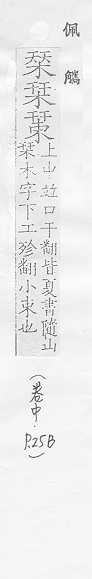 佩觿
栞栞
上山竝口干翻皆夏書隨山
栞木字下工殄翻小束也
(卷中.
P.25B)